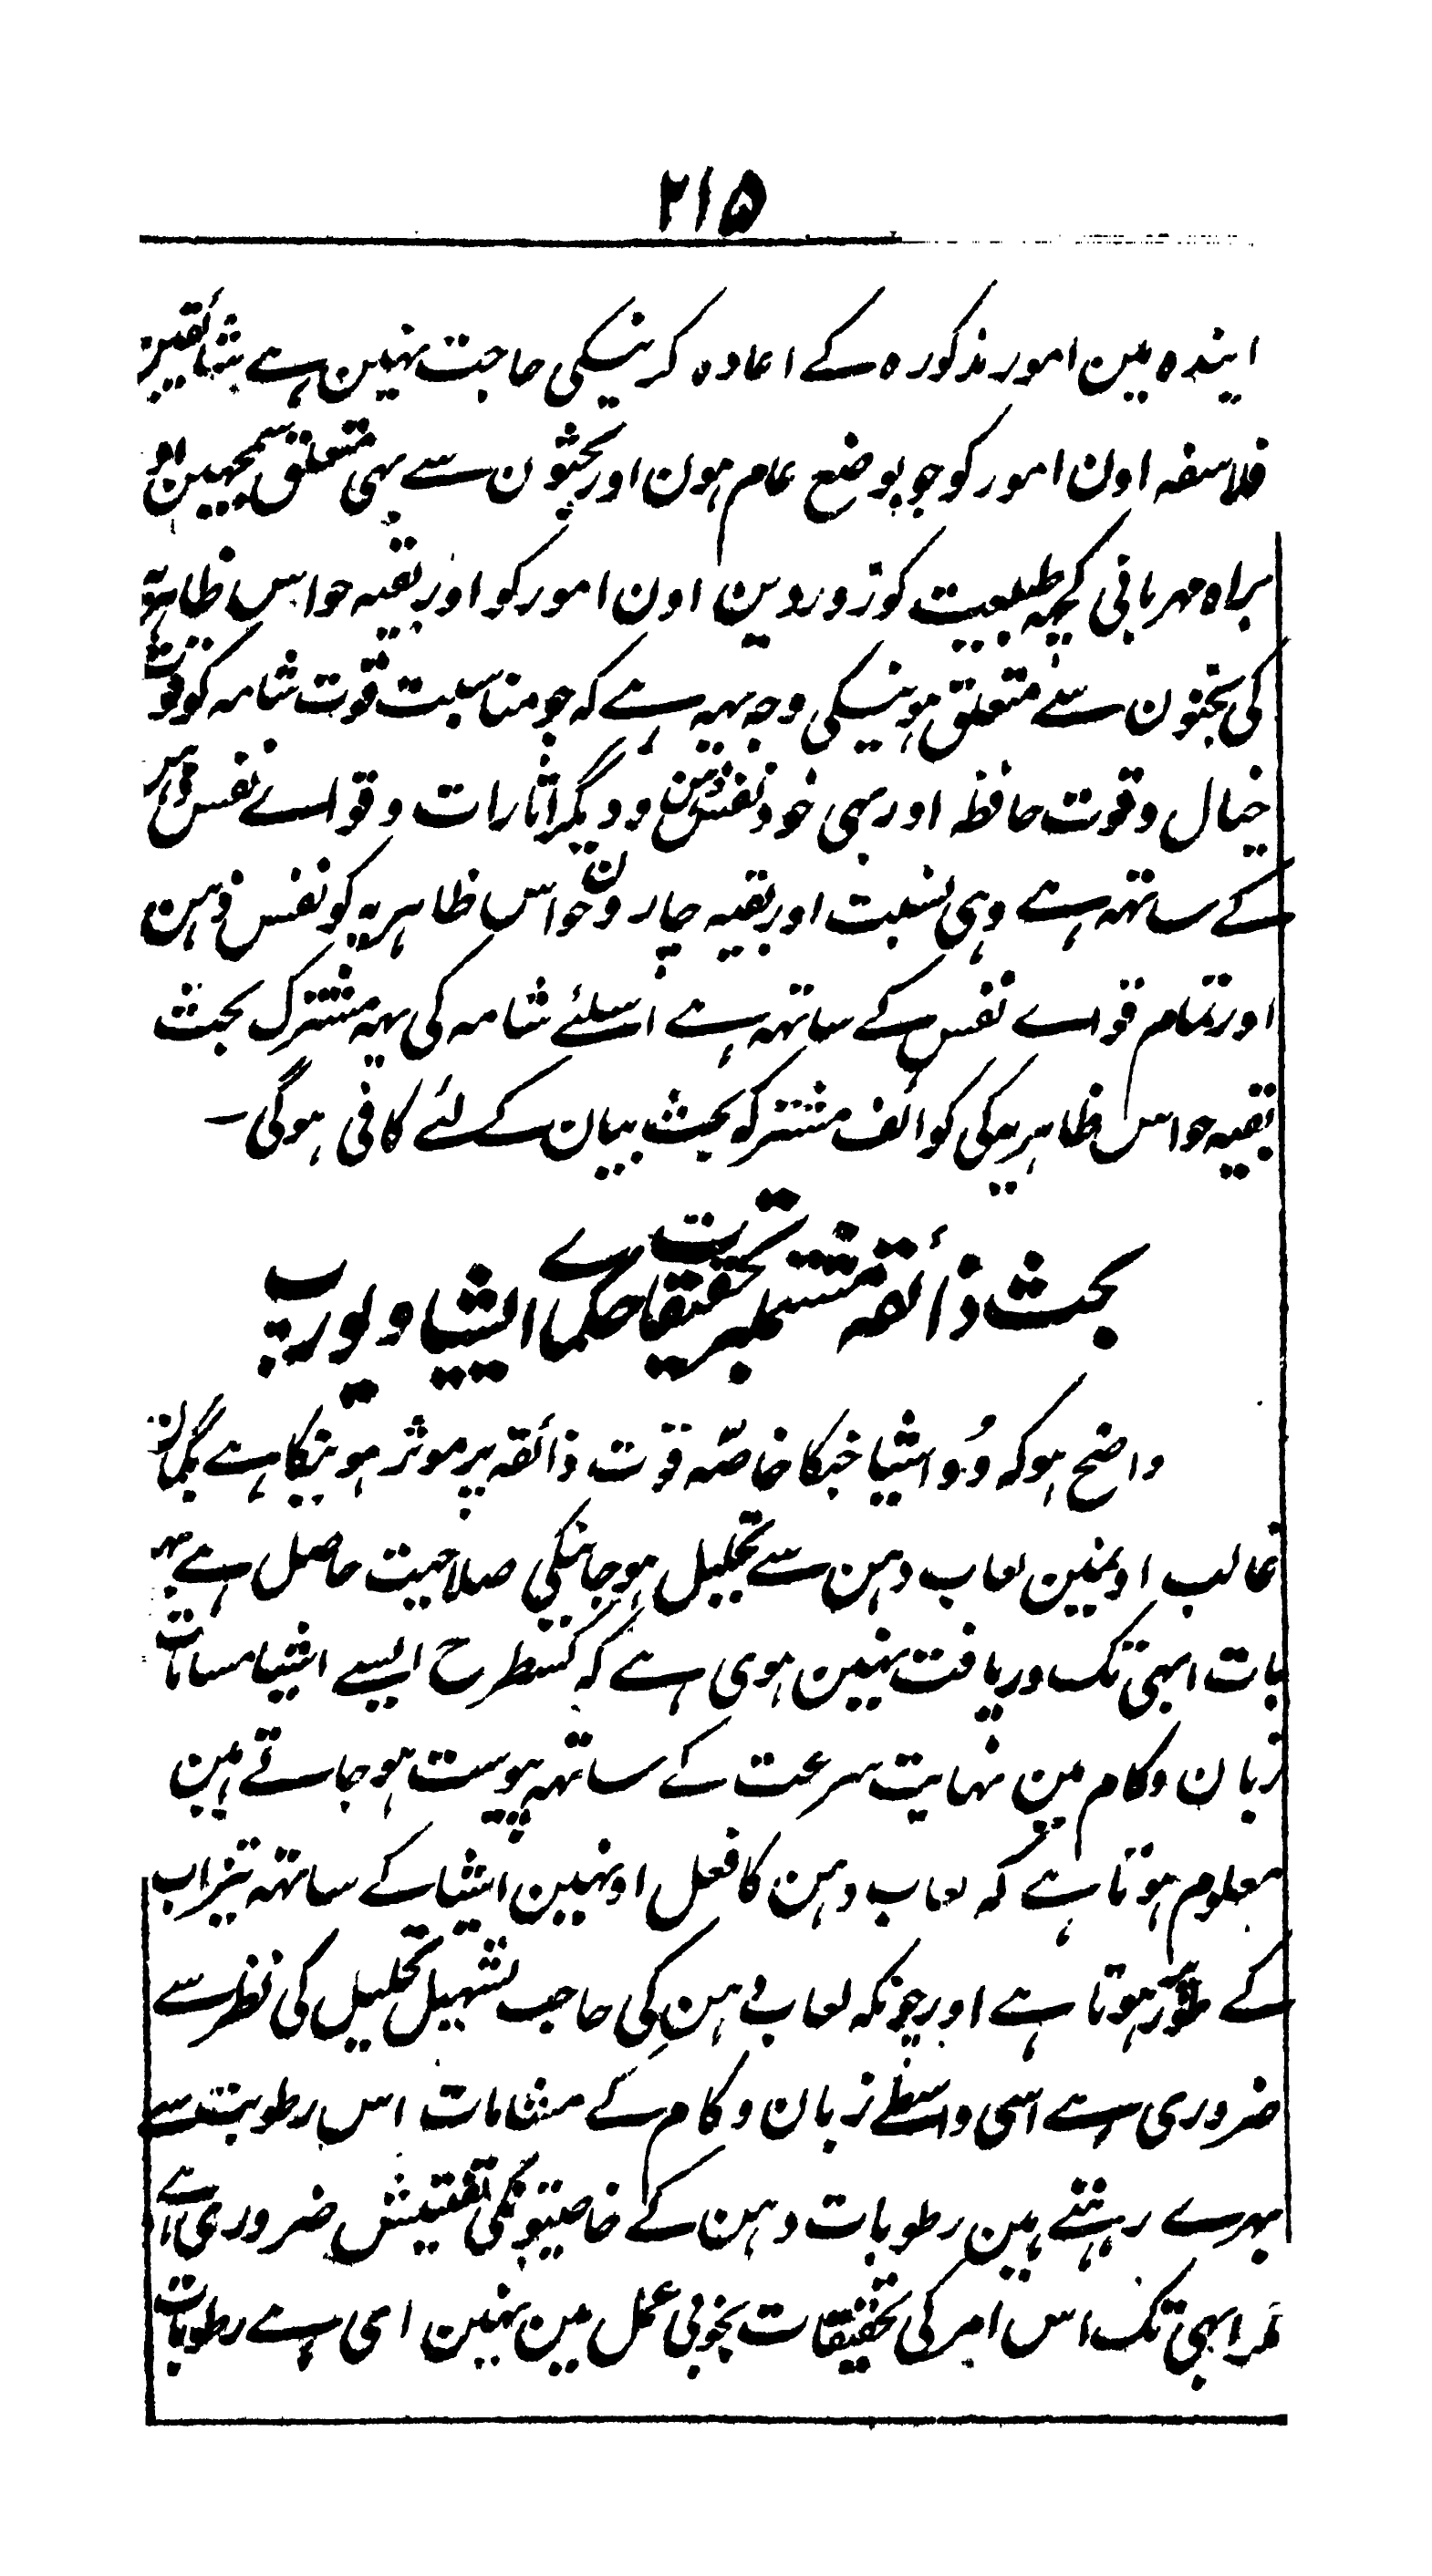 ۲۱۵
ایندہ مین امور مذکورہ کے اعادہ کرنیکی حاجت نہین ہے شائقین
فلاسفہ اون امور کو جو بوضع عام ہون اور بحثون سے بہی متعلق سمجہین اور
براہ مہربانی کچہ طبیعت کو زور دین اون امور کو اور بقیہ حواس ظاہریہ
کی بحثون سے متعلق ہونیکی وجہ یہہ ہے کہ جو مناسبت قوت شامہ کو قوت
خیال و قوت حافظہ اور بہی خود نفس ذہن و دیگر اثارات و قواے نفس
کے ساتہہ ہے وہی نسبت اور بقیہ چارون حواس ظاہریہ کو نفس ذہن
اور تمام قواے نفس کے ساتہہ ہے اسلئے شامہ کی یہہ مشترک بحث
بقیہ حواس ظاہریہ کی کوائف مشترکہ بحث بیان کے لئے کافی ہوگی۔
بحث ذائقہ مشتملبر تحقیقات حکماے ایشیا و یورپ
واضح ہو کہ وُہ اشیا جنکا خاصّہ قوّت ذائقہ پر موثر ہونیکا ہے بگمان
غالب اونہین لعاب دہن سے تحلیل ہو جانیکی صلاحیت حاصل ہے یہہ
بات ابہی تک دریافت نہین ہوی ہے کہ کسطرح ایسے اشیا مسامات
زبان و کام مین نہایت سرعت کے ساتہہ پیوست ہو جاتے ہین
معلوم ہوتا ہے کہ لعاب دہن کا فعل اونہین اشیا کے ساتہہ تیزاب
کے طور پر ہوتا ہے اور چونکہ لعاب دہن کی حاجب تسہیل تحلیل کی نظر سے
ضروری ہے اسی واسطے زبان و کام کے مشامات اس رطوبت سے
بہرے رہتے ہین رطوبات دہن کے خاصیتونکی تفتیش ضروری ہے
مگر ابہی تک اس امر کی تحقیقات بخوبی عمل مین نہین ای ہے رطوبات